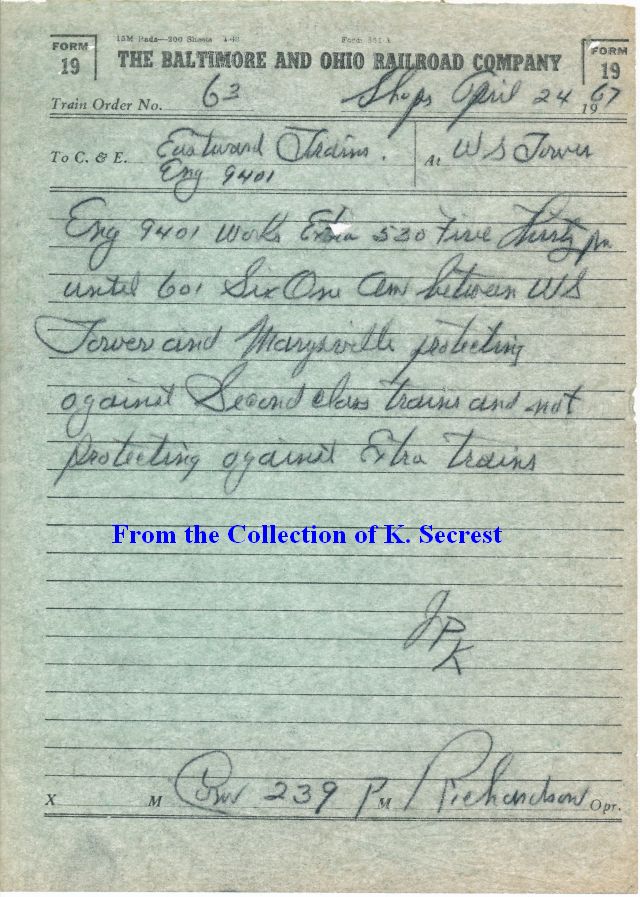 15M Pads—200 Sheets 4-63 Form 361 A
FORM 19 THE BALTIMORE AND OHIO RAILROAD COMPANY FORM 19
Train Order No. 63 Shops April 24 1967
To C. & E. Eastward Trains. At WS Tower
Eng 9401
Eng 9401 works Extra 530 Five Thirty pm
until 601 Six One am between WS
Tower and Marysville protecting
against Second class trains and not
protecting against Extra trains
From the Collection of K. Secrest
JPK
X M Com 239 P M Richardson Opr.